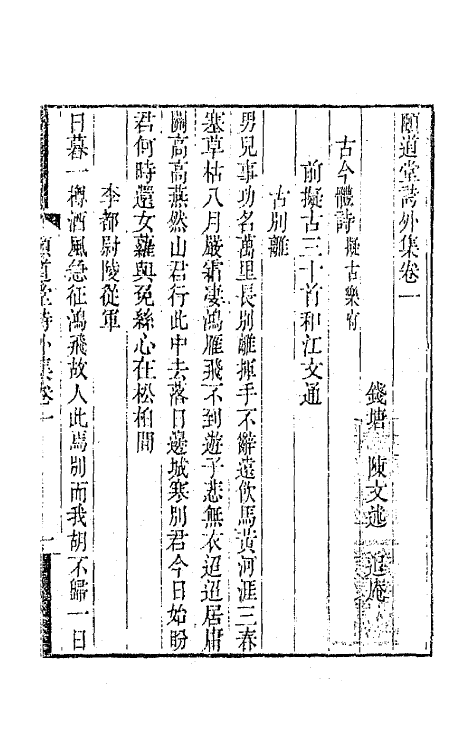 頤道堂詩外集卷一
錢塘 陳文述 退庵
古今體詩 擬古樂府
前擬古三十首和江文通
古別離
男兒事功名萬里長別離揮手不辭遠飲馬黃河涯三春
塞草枯八月嚴霜凄鴻雁飛不到遊子悲無衣迢迢居庸
關高高燕然山君行此中去落日邊城寒別君今日始盼
君何時還女蘿與兔絲心在松柏間
李都尉陵從軍
日暮一樽酒風急征鴻飛故人此焉別而我胡不歸一日
頤道堂詩外集卷一 一